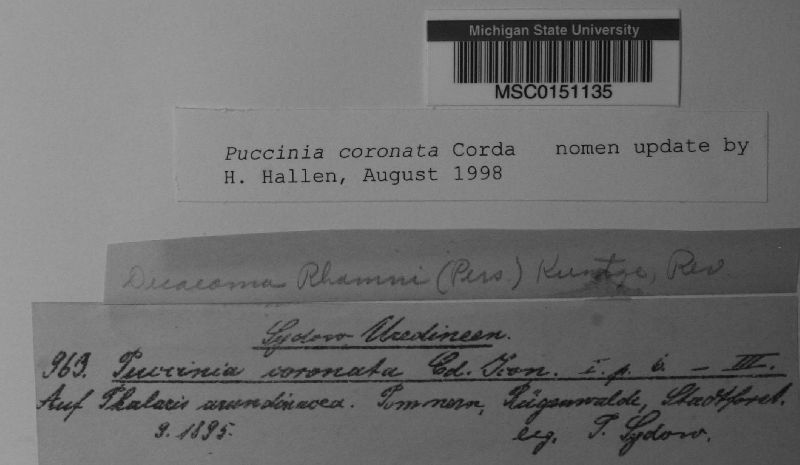 Michigan State University
MSC0151135
Puccinia coronata Corda nomen update by
H. Hallen, August 1998
Dicaeoma Rhamni (Pers.) Kuntze, Rev.
Sydow Uredineen.
963. Puccinia coronata Cd. Icon. I. p. 6. — III.
Auf Phalaris arundinacea. Pommern, Rügenwalde, Stadtforst.
9. 1895. leg. P. Sydow.